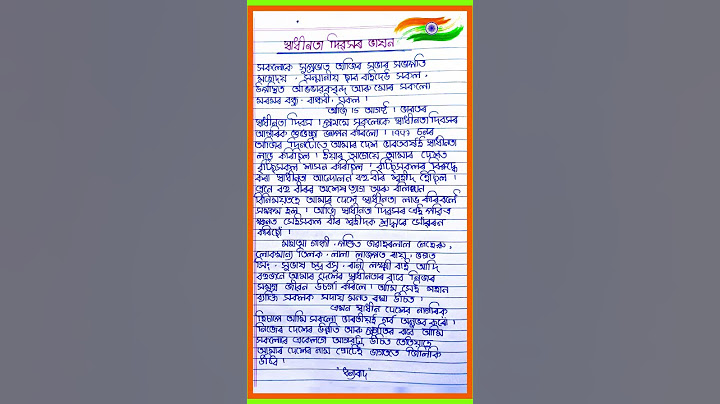 স্বাধীনতা দিৱসৰ ভাষন
সকলোকে সুপ্ৰভাত আজিৰ সভাৰ সভাপতি
মহোদয়, সন্মানীয় ছাৰ বাইদেউ সকল,
উপস্থিত অভিভাৱকবৃন্দ আৰু মোৰ সকলো
মৰমৰ বন্ধু-বান্ধৱী সকল।
আজি 15 আগষ্ট। ভাৰতৰ
স্বাধীনতা দিৱস। প্ৰথমে সকলোকে স্বাধীনতা দিৱসৰ
আন্তৰিক শুভেচ্ছা জ্ঞাপন কৰিলো। 1947 চনৰ
আজিৰ দিনটোতে আমাৰ দেশ ভাৰতবৰ্ষই স্বাধীনতা
লাভ কৰিছিল। ইয়াৰ আগেয়ে আমাৰ দেশত
বৃটিছসকল শাসন কৰিছিল। বৃটিছসকলৰ বিৰুদ্ধে
কৰা স্বাধীনতা আন্দোলনত বহু বীৰ শ্বহীদ হৈছিল।
এনে বহু বীৰৰ অশেষ ত্যাগ আৰু বলিদানৰ
বিনিময়তহে আমাৰ দেশে স্বাধীনতা লাভ কৰিবলৈ
সক্ষম হল। আজি স্বাধীনতা দিৱসৰ এই পবিত্ৰ
ক্ষনত সেইসকল বীৰ শ্বহীদক শ্ৰদ্ধাৰে সোঁৱৰন
কৰিছোঁ।
মহাত্মা গান্ধী, পণ্ডিত জৱাহৰলাল নেহেৰু,
লোকমান্য তিলক, লালা লাজপত ৰায়, ভগত
সিং, সুভাষ চন্দ্ৰ বসু, ৰানী লক্ষ্মী বাই আদি
বহুজনে আমাৰ দেশৰ স্বাধীনতাৰ বাবে নিজৰ
সমগ্ৰ জীৱন উচৰ্গা কৰিলে। আমি সেই মহান
ব্যক্তি সকলক সদায় মনত ৰখা উচিত।
এখন স্বাধীন দেশৰ নাগৰিক
হিচাপে আমি সকলো ভাৰতীয়ই গৰ্ব অনুভৱ কৰো।
নিজৰ দেশৰ উন্নতি আৰু প্ৰগতিৰ বাবে আমি
সকলোৱে একেলগে আগবাঢ়ি উচিত তেতিয়াহে
আমাৰ দেশৰ নাম গোটেই জগততে জিলিকি
উঠিব।
"ধন্যবাদ"